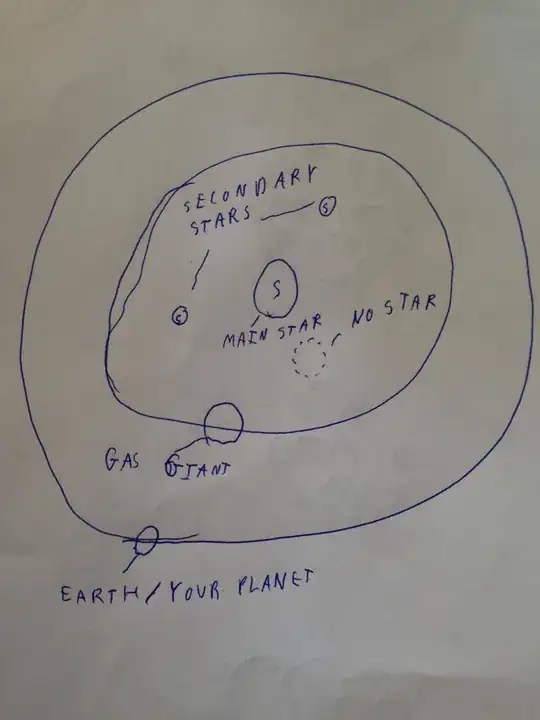 SECONDARY
STARS
S
S
S
MAIN STAR
NO STAR
GAS GIANT
EARTH/YOUR PLANET